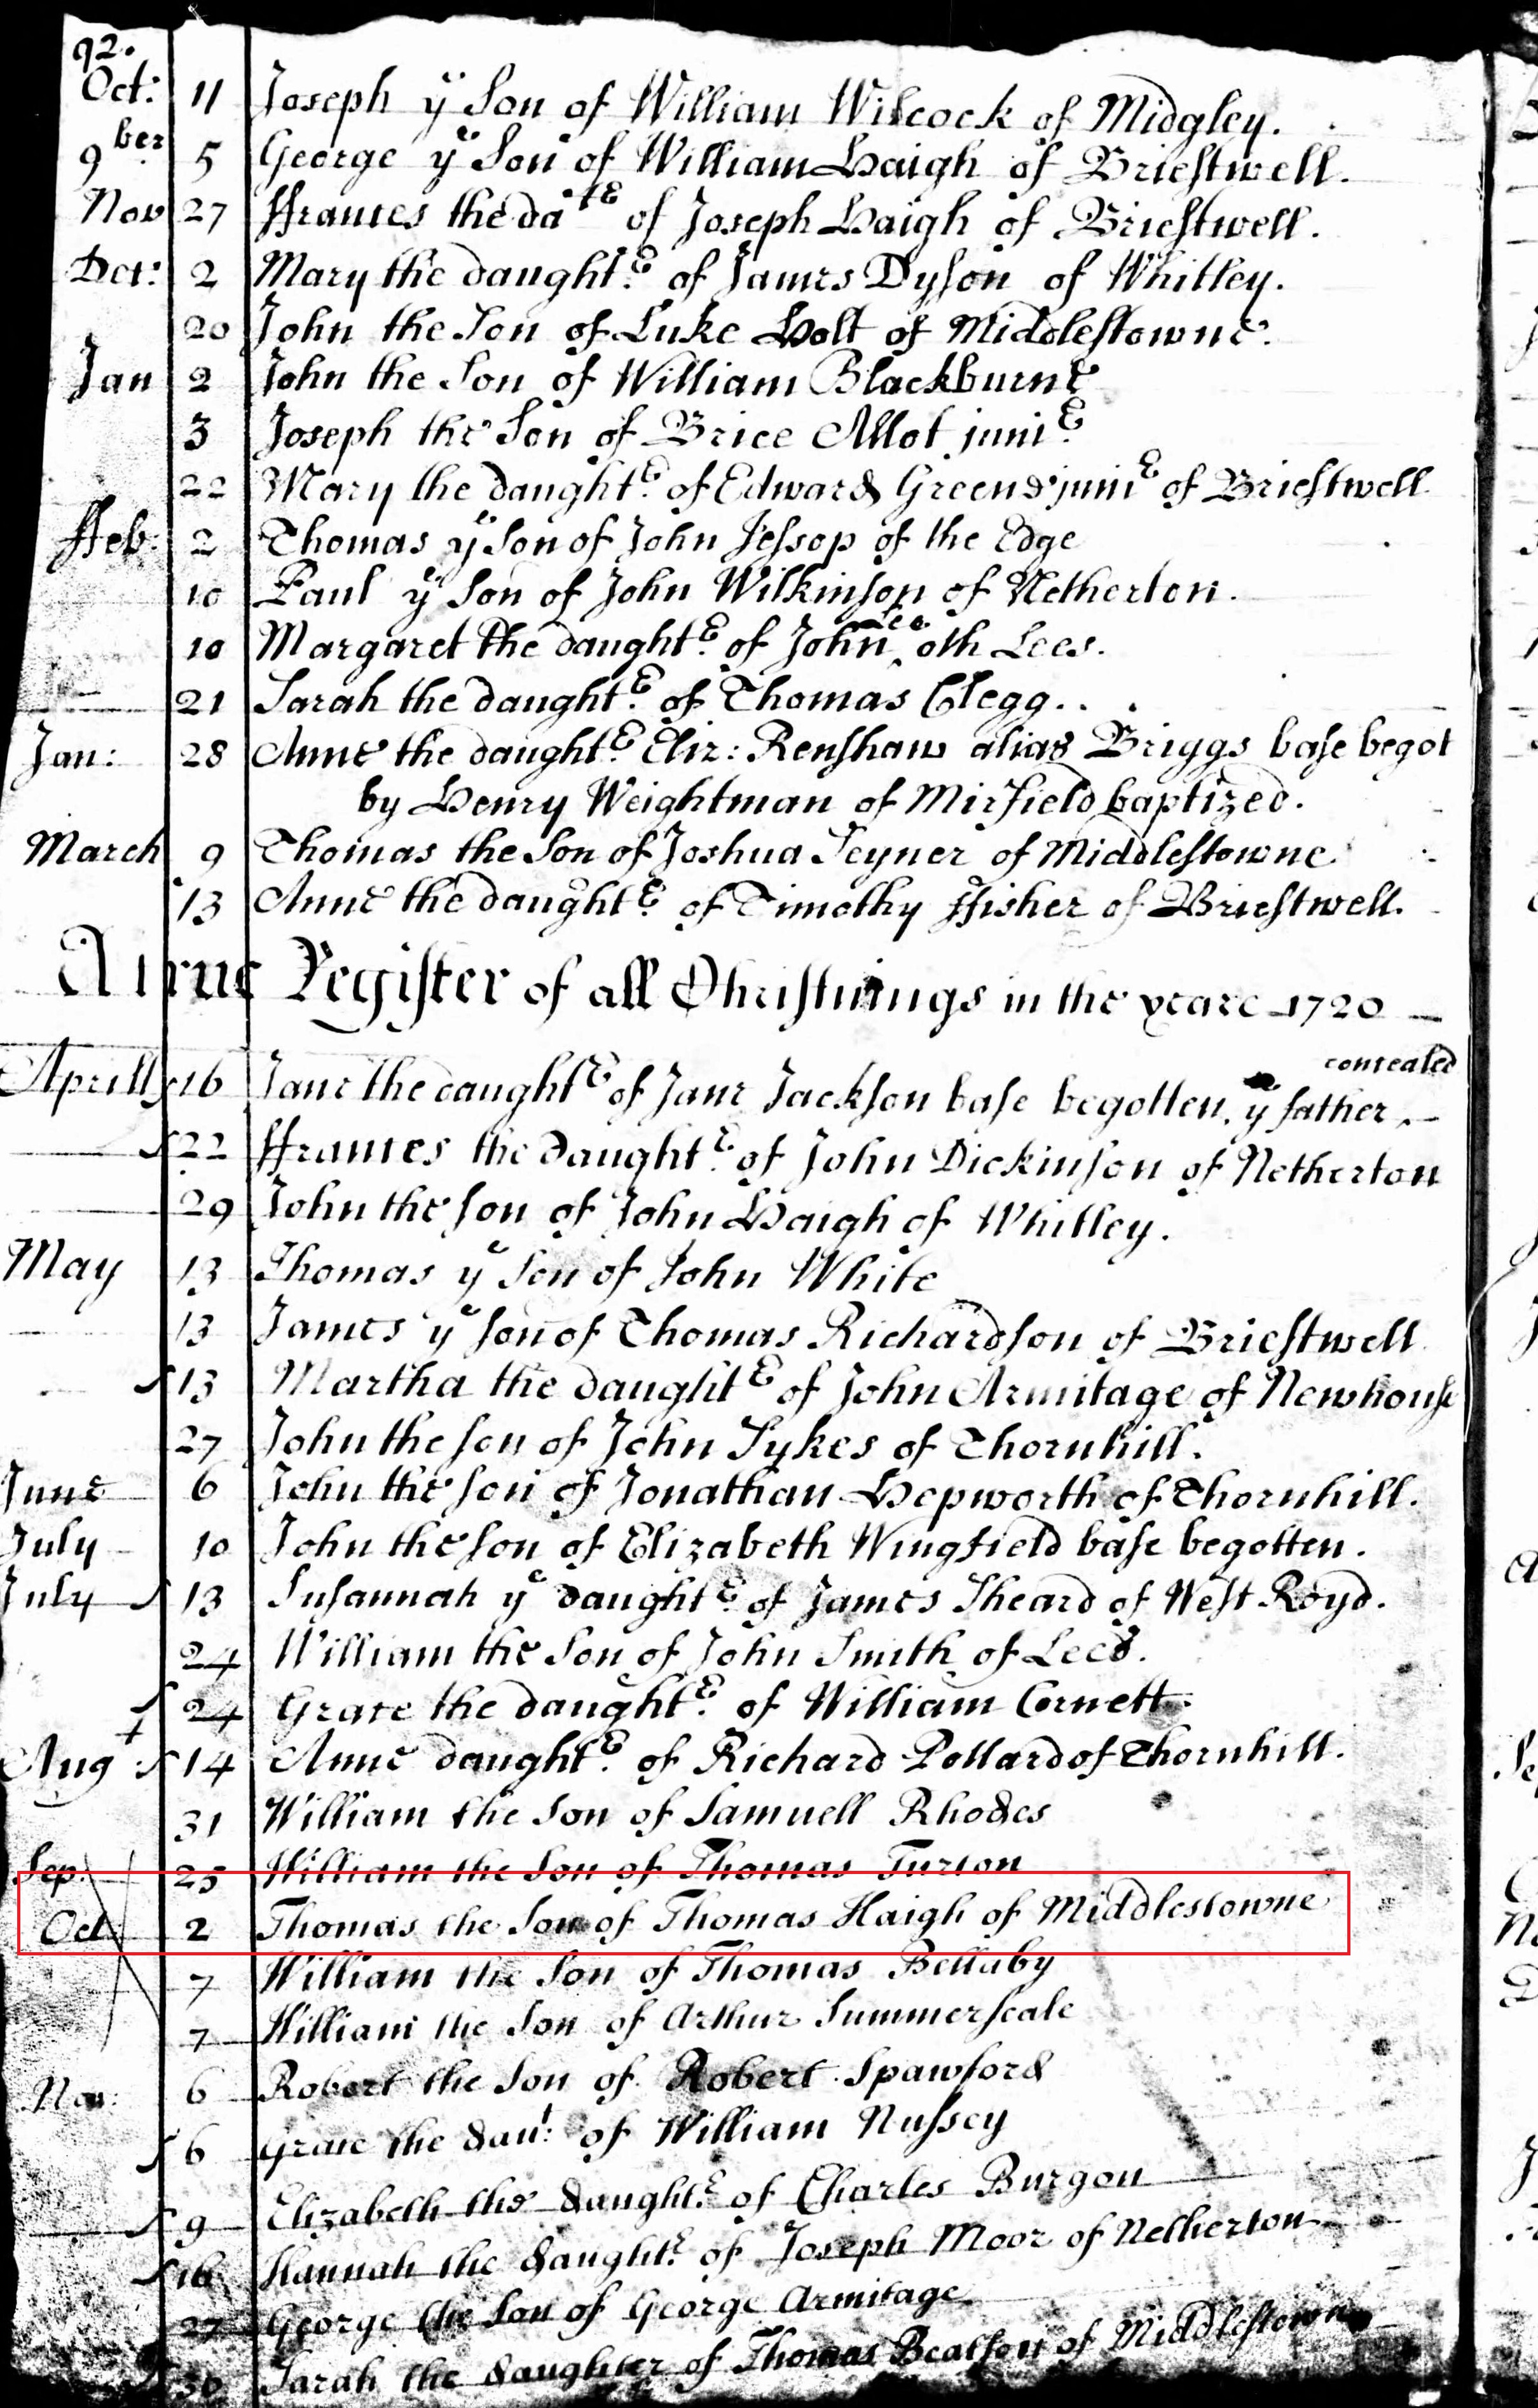 92.
Oct: 11 Joseph ye Son of William Wilcock of Midgley.
9ber 5 George ye Son of William Haigh of Briestwell.
Nov 27 ffrances the datr of Joseph Haigh of Briestwell.
Dec: 2 Mary the daughtr. of James Dyson of Whitley.
20 John the Son of Luke Holt of Middlestowne.
Jan 2 John the Son of William Blackburne
3 Joseph the Son of Brice Allot junir.
22 Mary the daughtr. of Edward Greene junir of Briestwell
ffeb: 2 Thomas ye Son of John Jessop of the Edge
10 Paul ye Son of John Wilkinson of Netherton.
10 Margaret the daughtr. of John Lee oth Lees.
21 Sarah the daughtr. of Thomas Clegg..
Jan: 28 Anne the daughtr. Eliz: Renshaw alias Briggs base begot
by Henry Weightman of Mirfield baptized.
March 9 Thomas the Son of Joshua Seyner of Middlestowne
13 Anne the daughtr. of Timothy ffisher of Briestwell.
A true Register of all Christnings in the yeare 1720
concealed
Aprill 16 Jane the daughtr of Jane Jackson base begotten, ye father
22 ffrances the daughtr. of John Dickinson of Netherton
29 John the son of John Haigh of Whitley.
May 13 Thomas ye Son of John White
13 James ye son of Thomas Richardson of Briestwell
13 Martha the daughtr of John Armitage of Newhouse
27 John the son of John Sykes of Thornhill.
June 6 John the son of Jonathan Hepworth of Thornhill.
July 10 John the son of Elizabeth Wingfield base begotten.
July 13 Susannah ye daughtr. of James Sheard of West Royd.
24 William the Son of John Smith of Lees.
24 Grace the daughtr. of William Cornett.
Aug 14 Anne daughtr. of Richard Pollard of Thornhill.
31 William the Son of Samuell Rhodes
Sep. 25 William the Son of Thomas Turton
Oct 2 Thomas the Son of Thomas Haigh of Middlestowne
7 William the Son of Thomas Bellaby
7 William the Son of Arthur Summerscale
Nov: 6 Robert the Son of Robert Spawford
6 Grace the daut: of William Nussey
9 Elizabeth the daughtr. of Charles Burgon
16 Hannah the daughtr. of Joseph Moor of Netherton
27 George the Son of George Armitage
30 Sarah the daughter of Thomas Beatson of Middlestown